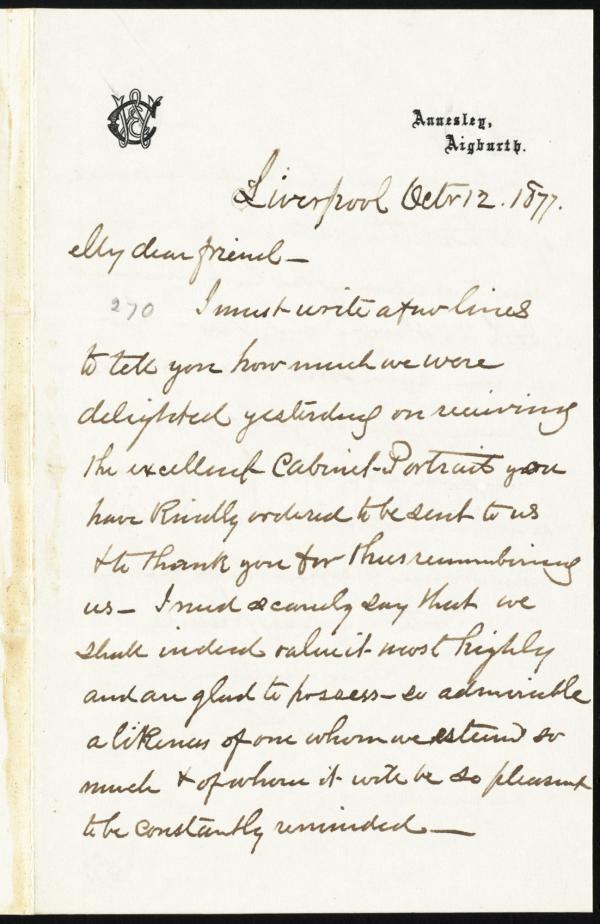 Annesley,
Aigburth.
Liverpool Octr 12. 1877.
My dear friend—
270 I must write a few lines
to tell you how much we were
delighted yesterday on receiving
the excellent Cabinet-Portrait you
have kindly ordered to be sent to us
& to thank you for thus remembering
us— I need scarcely say that we
shall indeed value it most highly
and are glad to possess so admirable
a likeness of one whom we esteem so
much & of whom it will be so pleasant
to be constantly reminded—